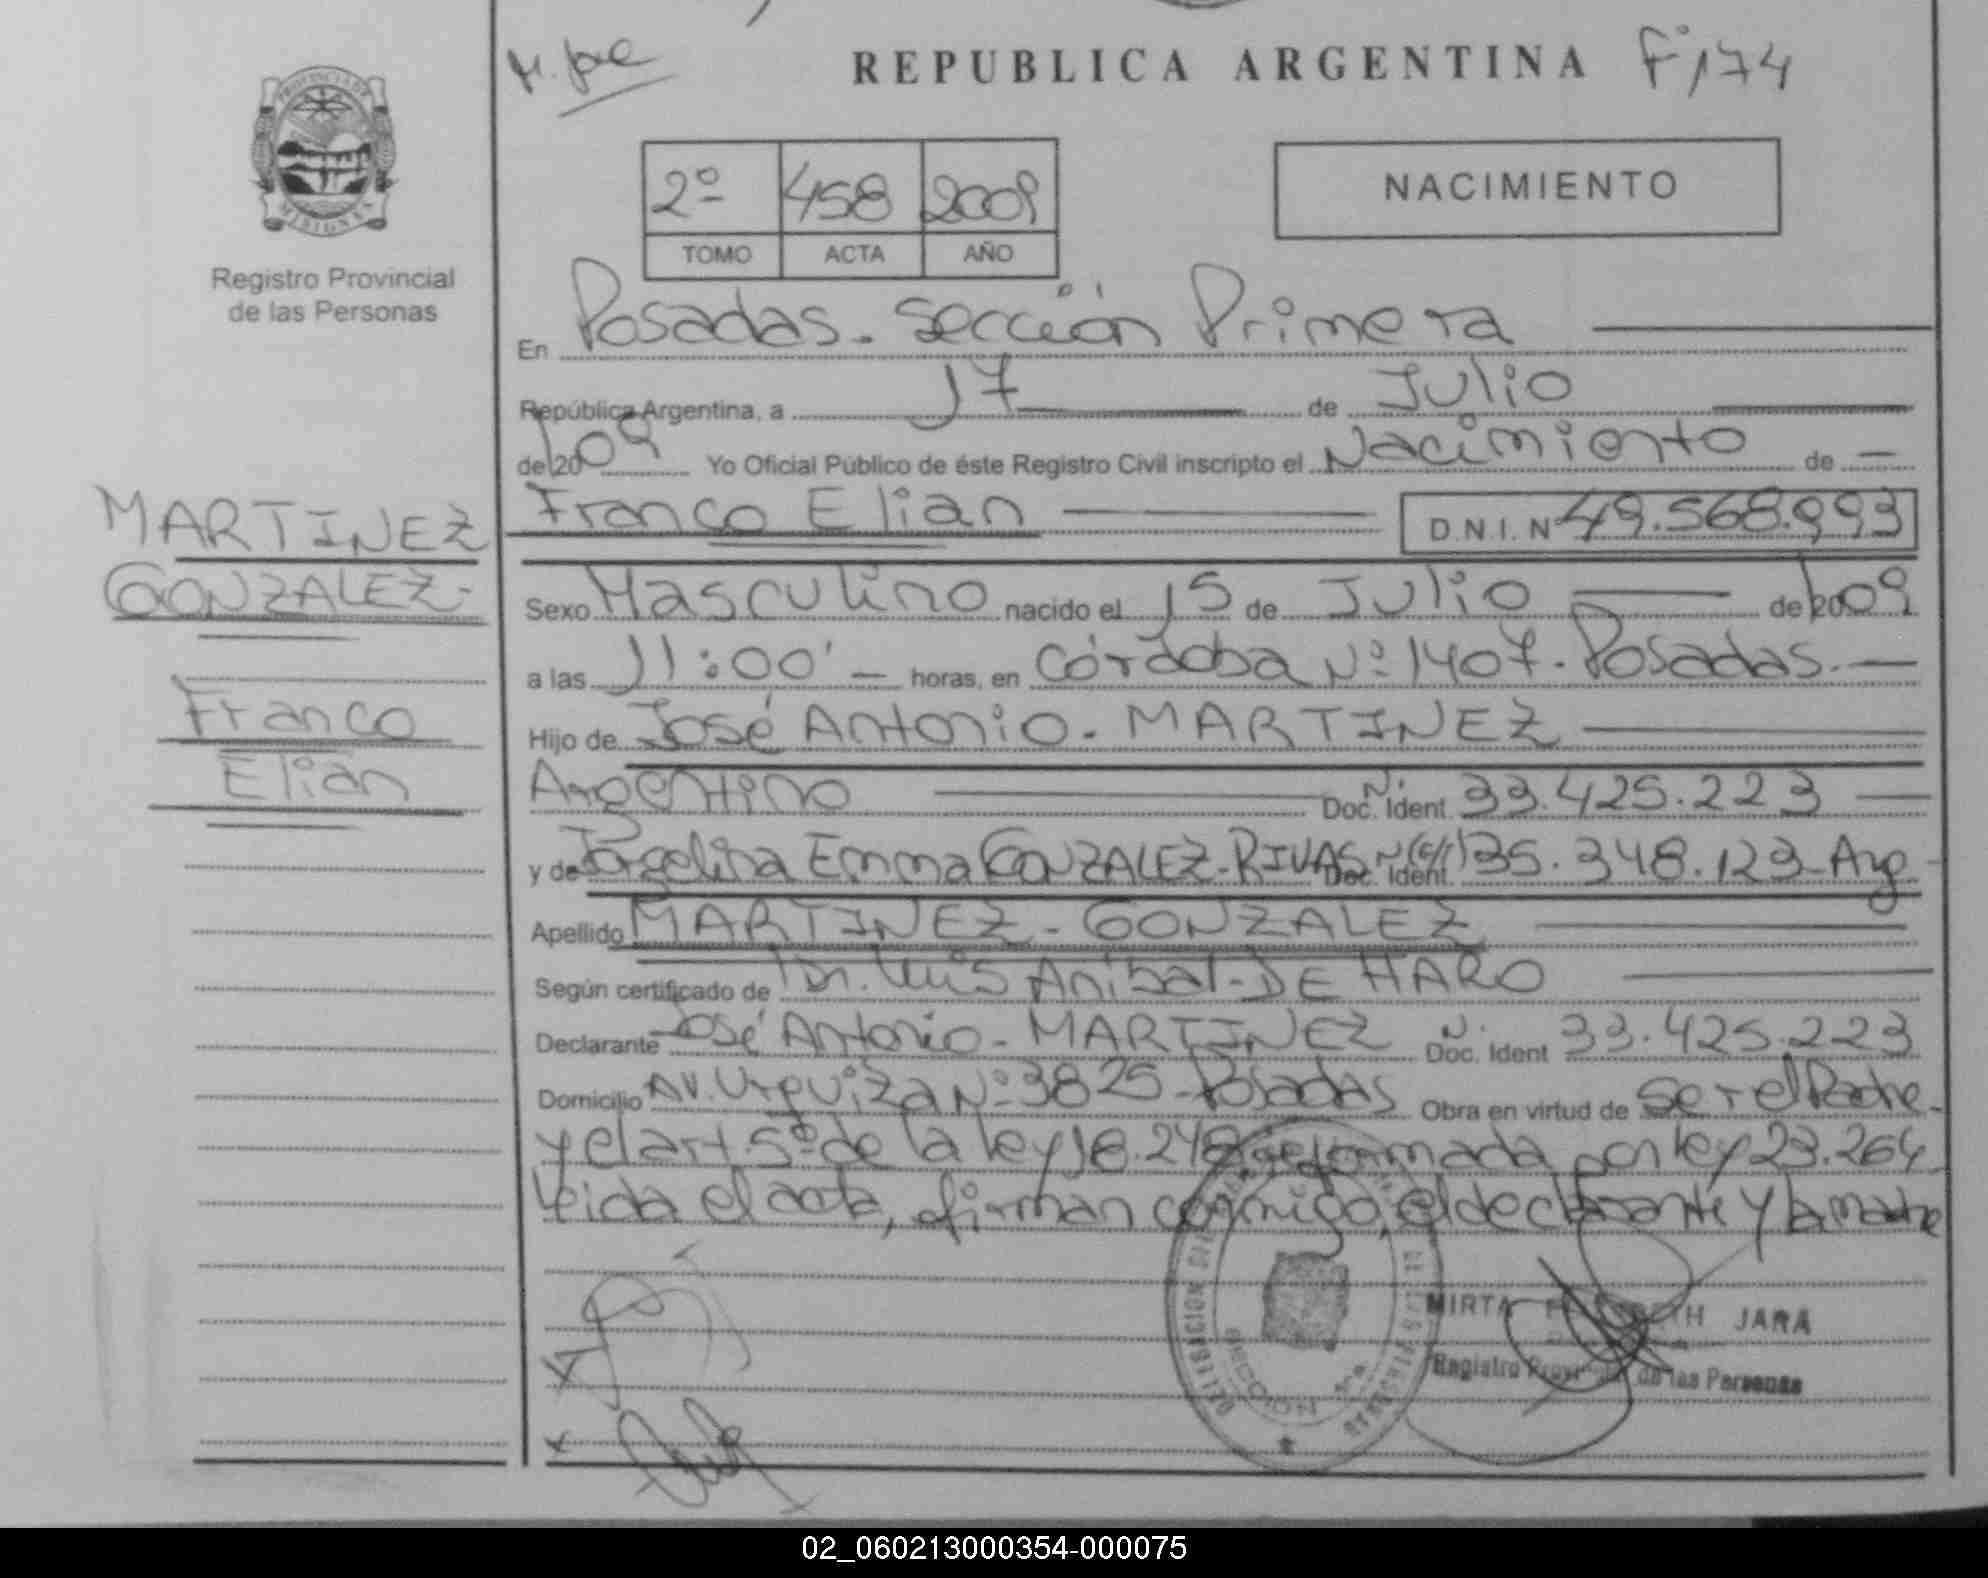 REPUBLICA ARGENTINA F° 174
PROVINCIA DE
MISIONES
Registro Provincial
de las Personas
2º 458 2009
TOMO ACTA AÑO
NACIMIENTO
En Posadas. Sección Primera
República Argentina, a 17 de Julio
de 2009 Yo Oficial Público de éste Registro Civil inscripto el Nacimiento de
Franco Elian D.N.I. Nº 49.568.993
MARTINEZ
GONZALEZ-
Franco
Elian
Sexo Masculino nacido el 15 de Julio de 2009
a las 11:00' horas, en Córdoba Nº 1407. Posadas.
Hijo de José Antonio. MARTINEZ
Argentino Doc. Ident. 33.425.223
y de Jorgelina Emma GONZALEZ-RIVAS Doc. Ident. 35.348.123-Arg
Apellido MARTINEZ - GONZALEZ
Según certificado de Dr. Luis Anibal-DE HARO
Declarante José Antonio - MARTINEZ Doc. Ident 33.425.223
Domicilio AV. Urquiza Nº 3825 - Posadas Obra en virtud de ser el Padre-
y el art. 5º de la ley 18.248 reformada por ley 23.264
Leida el acta, firman conmigo, el declarante y la madre
DELEGACION
SECCION 1ra
DE LAS PERSONAS
MIRTA ELIZABETH JARA
Registro Provincial de las Personas
02_060213000354-000075